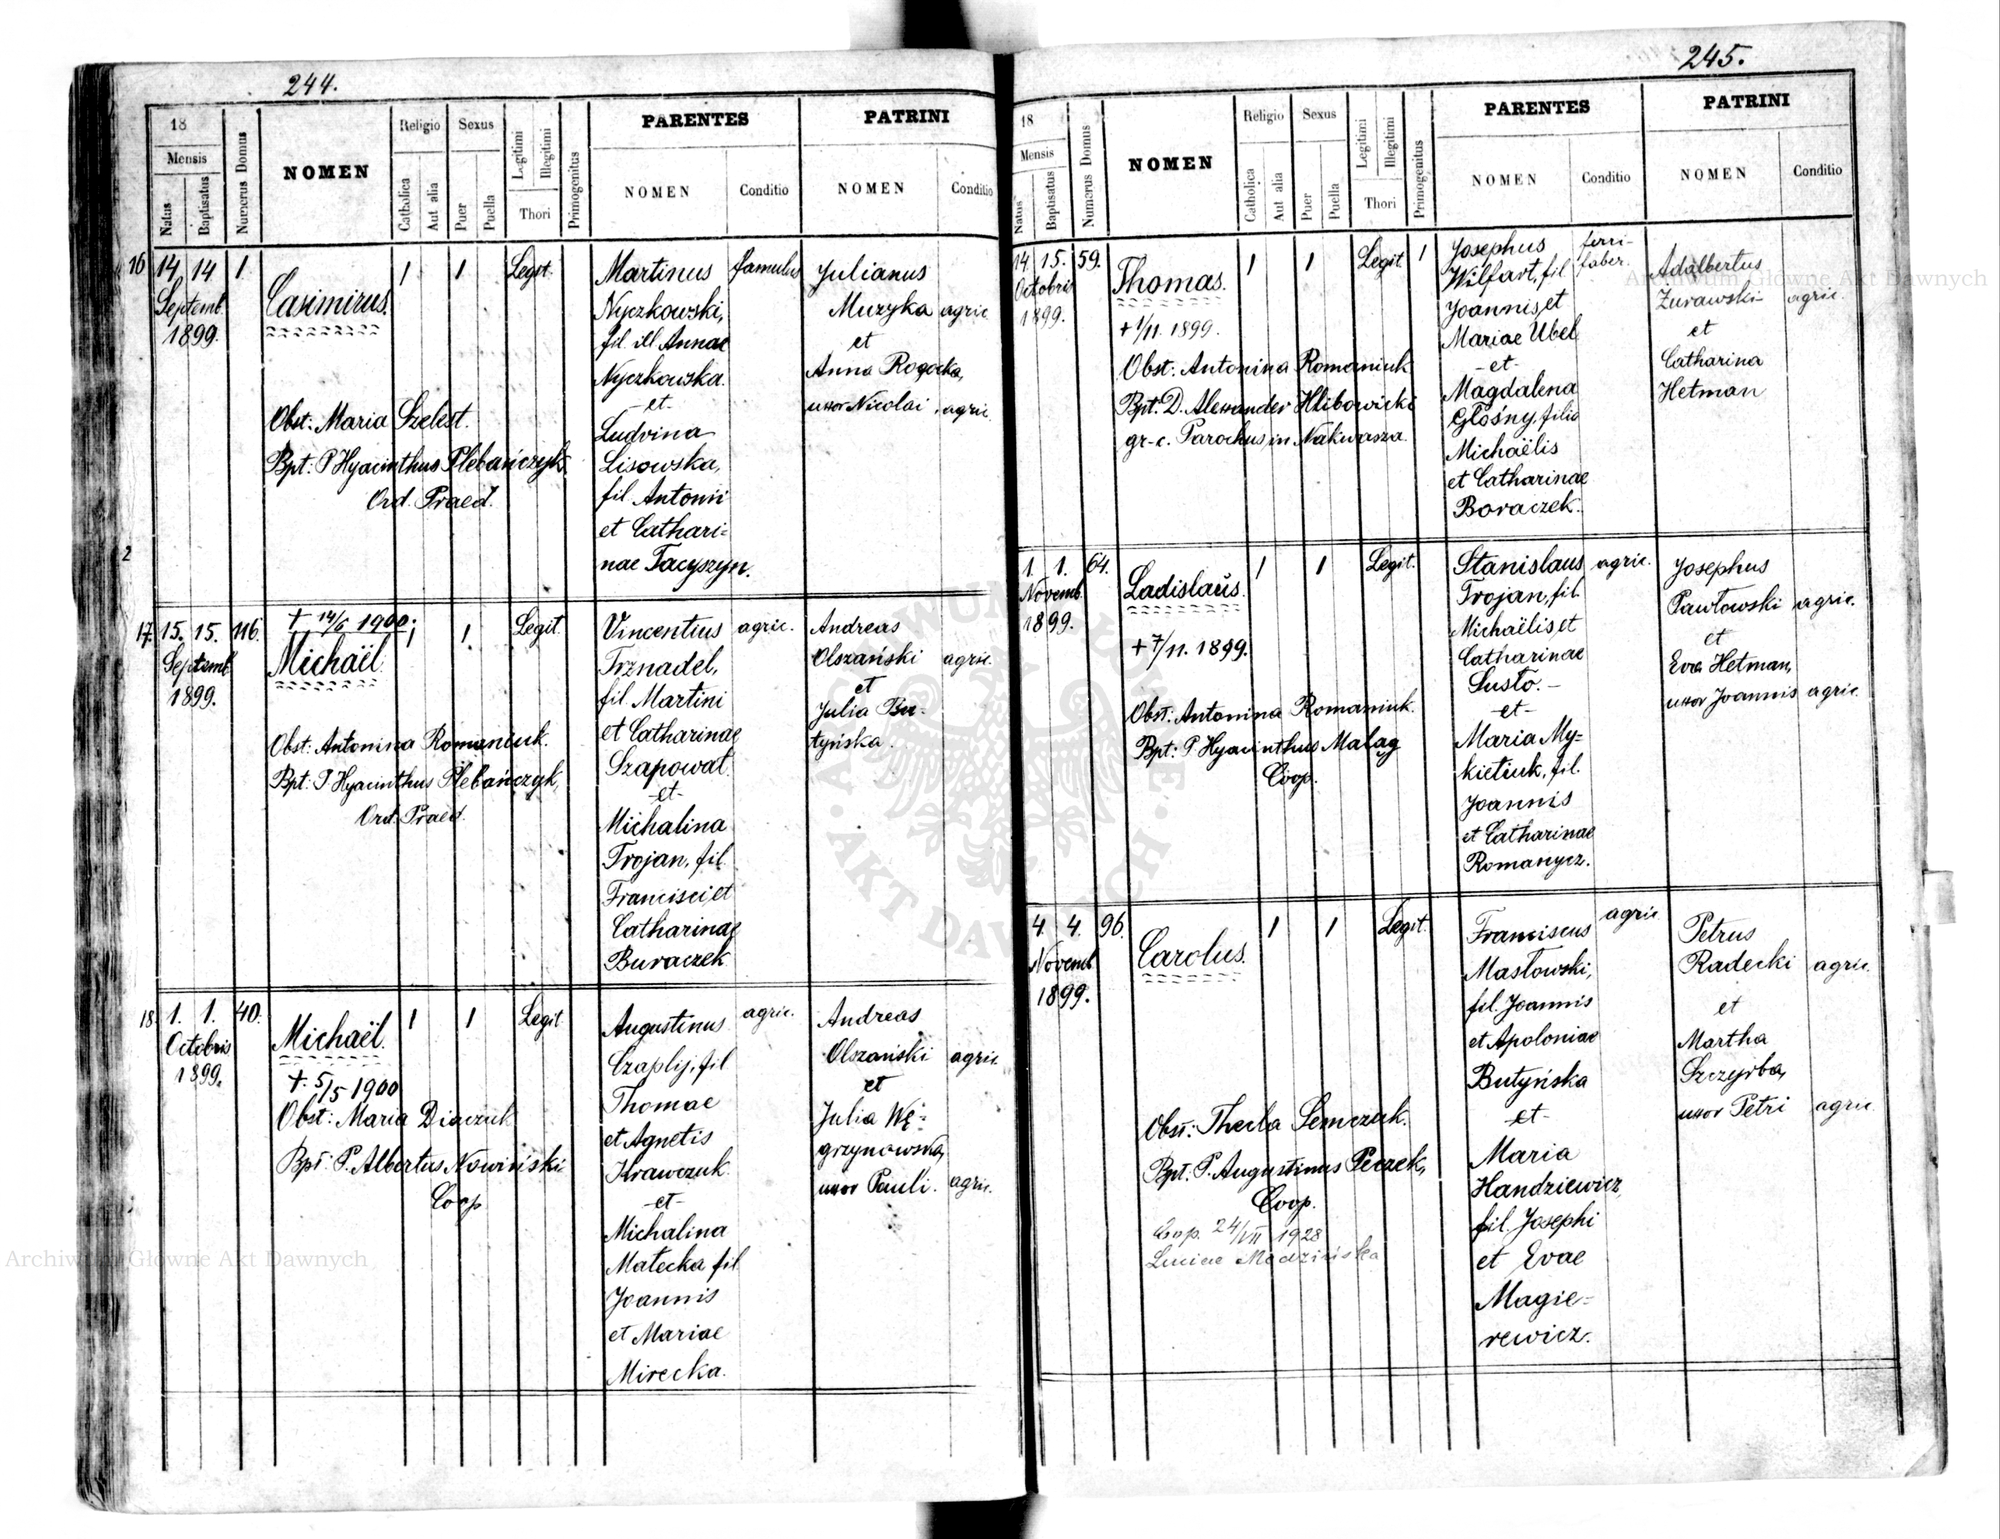 244.
18
Mensis
Natus
Baptisatus
Numerus Domus
NOMEN
Religio
Catholica
Aut alia
Sexus
Puer
Puella
Legitimi
Illegitimi
Thori
Primogenitus
PARENTES
NOMEN
Conditio
PATRINI
NOMEN
Conditio
16
14. 14. 1.
Septemb.
1899.
Casimirus.
Obst: Maria Szelest.
Bpt: P. Hyacinthus Plebańczyk,
Ord. Praed.
1 1 Legit.
Martinus
Nyczkowski,
fil. ill. Annae
Nyczkowska.
-et-
Ludvina
Lisowska,
fil. Antonii
et Cathari=
nae Tacyszyn.
famulus
Julianus
Muzyka agric.
et
Anna Rogocka,
uxor Nicolai agric.
2
17.
15. 15. 116.
Septemb.
1899.
+ 14/6 1900.
Michaël.
Obst: Antonina Romaniuk.
Bpt: P. Hyacinthus Plebańczyk,
Ord. Praed.
1 1 Legit.
Vincentius
Trznadel,
fil. Martini
et Catharinae
Szapowat.
-et-
Michalina
Trojan, fil.
Francisci et
Catharinae
Buraczek
agric.
Andreas
Olszański agric.
et
Julia Bu-
tyńska.
18.
1. 1. 40.
Octobris
1899.
Michaël.
+ 5/5 1900
Obst: Maria Diaczuk
Bpt: P. Albertus Nowiński
Coop
1 1 Legit
Augustinus
Czaplij, fil.
Thomae
et Agnetis
Krawczuk
-et-
Michalina
Małecka fil.
Joannis
et Mariae
Mirecka.
agric.
Andreas
Olszański agric.
et
Julia Wę-
grzynowska,
uxor Pauli. agric.
245.
18
Mensis
Natus
Baptisatus
Numerus Domus
NOMEN
Religio
Catholica
Aut alia
Sexus
Puer
Puella
Legitimi
Illegitimi
Thori
Primogenitus
PARENTES
NOMEN
Conditio
PATRINI
NOMEN
Conditio
14. 15. 59.
Octobris
1899.
Thomas.
+ 1/11. 1899.
Obst: Antonina Romaniuk
Bpt: D. Alexander Hlibowicki
gr-c. Parochus in Nakwasza.
1 1 Legit 1
Josephus
Wilfart, fil.
Joannis et
Mariae Ubel
-et-
Magdalena
Głośny, filia
Michaëlis
et Catharinae
Boraczek.
ferri-
faber.
Adalbertus
Żurawski agric.
et
Catharina
Hetman
1. 1. 64.
Novemb.
1899.
Ladislaus.
+ 7/11. 1899.
Obst: Antonina Romaniuk.
Bpt: P. Hyacinthus Malag
Coop.
1 1 Legit.
Stanislaus
Trojan, fil.
Michaëlis et
Catharinae
Susło.-
-et-
Maria My-
kietiuk, fil.
Joannis
et Catharinae
Romanycz.
agric.
Josephus
Pawłowski agric.
et
Eva Hetman,
uxor Joannis agric.
4. 4. 96.
Novemb.
1899.
Carolus.
Obst: Thecla Semczuk.
Bpt: P. Augustinus Peczek,
Coop.
Cop. 24/VII 1928
1 1 Legit.
Franciscus
Masłowski,
fil. Joannis
et Apoloniae
Butyńska
-et-
Maria
Handziewicz
fil. Josephi
et Evae
Magie=
rewicz.
agric.
Petrus
Radecki agric.
et
Martha
Szczyrba,
uxor Petri agric.
Archiwum Główne Akt Dawnych
Archiwum Główne Akt Dawnych